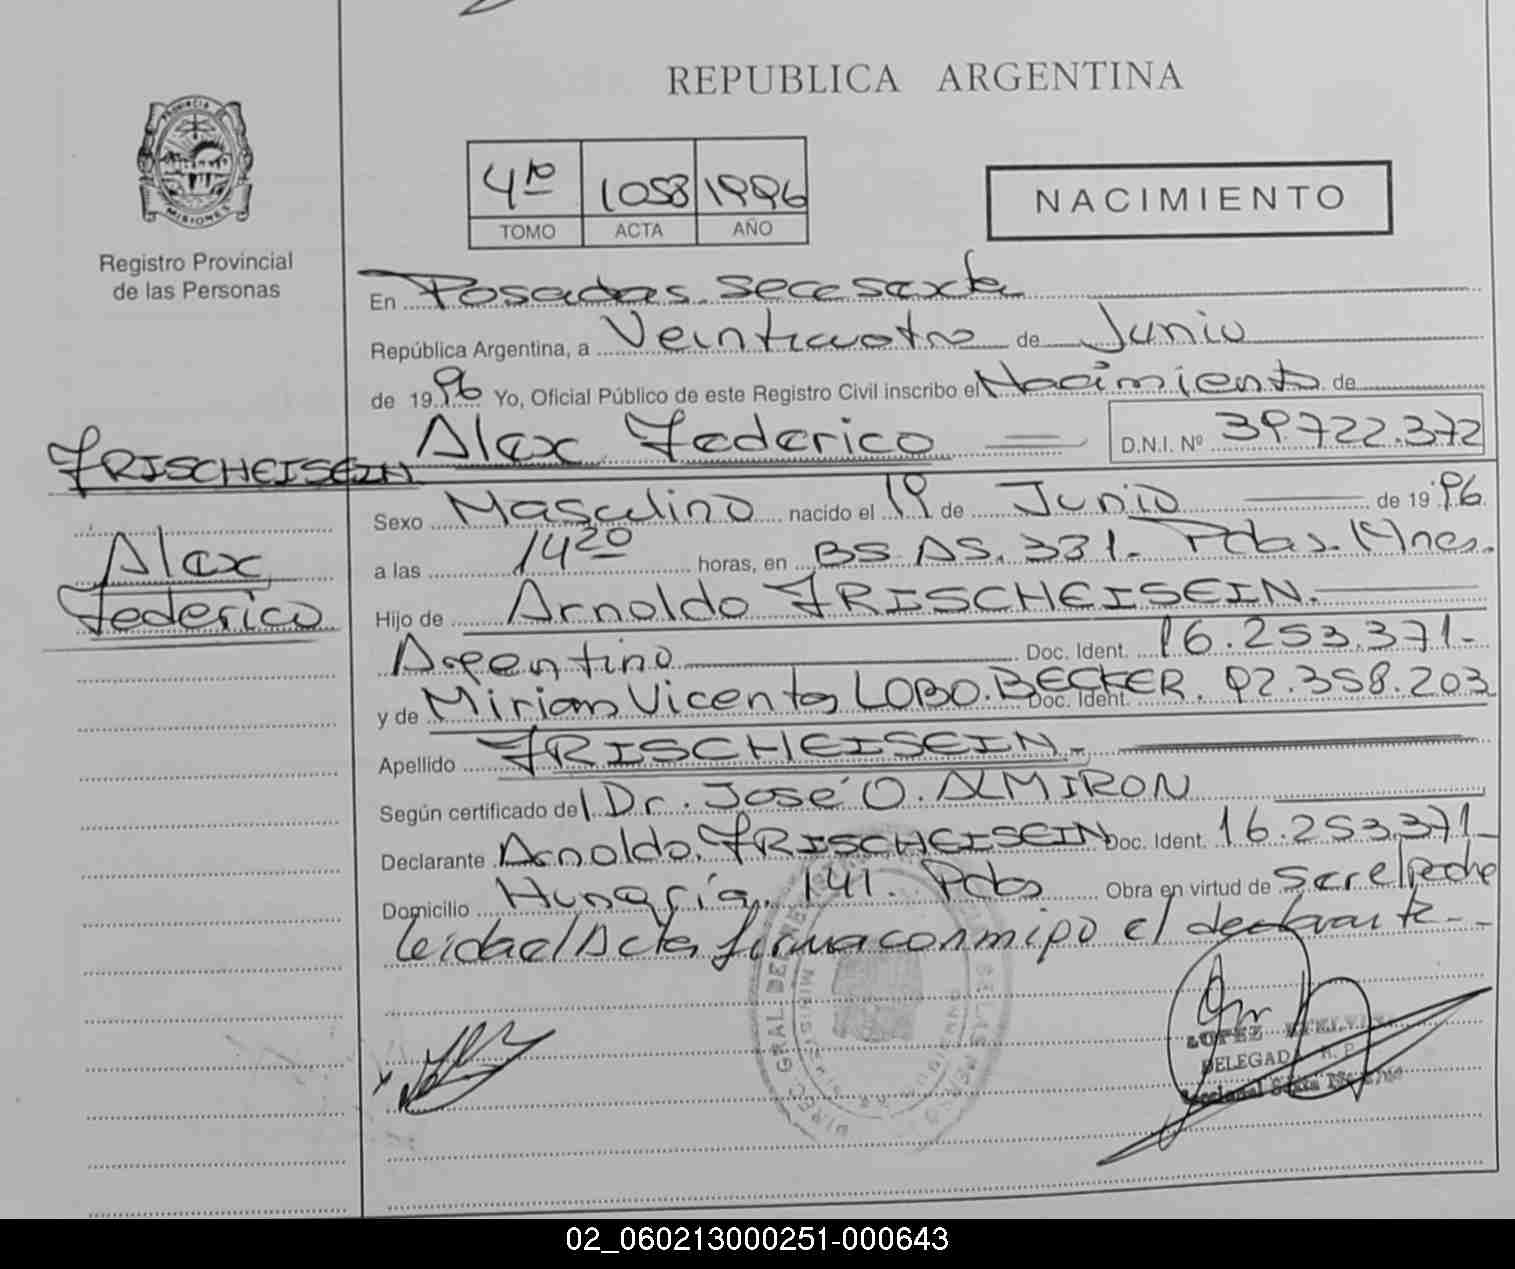 REPUBLICA ARGENTINA
PROVINCIA DE
MISIONES
Registro Provincial
de las Personas
4to 1058 1996
TOMO ACTA AÑO
NACIMIENTO
En Posadas. Secc sexta
República Argentina, a Veinticuatro de Junio
de 1996 Yo, Oficial Público de este Registro Civil inscribo el Nacimiento de
Alex Federico D.N.I. Nº 39.722.372
FRISCHEISEIN
Alex
Federico
Sexo Masculino nacido el 19 de Junio de 1996.
a las 14 20 horas, en BS. AS. 331. Pdas. Mnes.
Hijo de Arnoldo FRISCHEISEIN.
Argentino Doc. Ident. 16.253.371-
y de Miriam Vicenta LOBO. BECKER. Doc. Ident. 92.358.203
Apellido FRISCHEISEIN.-
Según certificado del Dr. José O. ALMIRON
Declarante Arnoldo. FRISCHEISEIN Doc. Ident. 16.253.371-
Domicilio Hungría. 141. Pdas Obra en virtud de
leida el Acta firma conmigo el declarante--
LOPEZ
DELEGADA R. P.
02_060213000251-000643